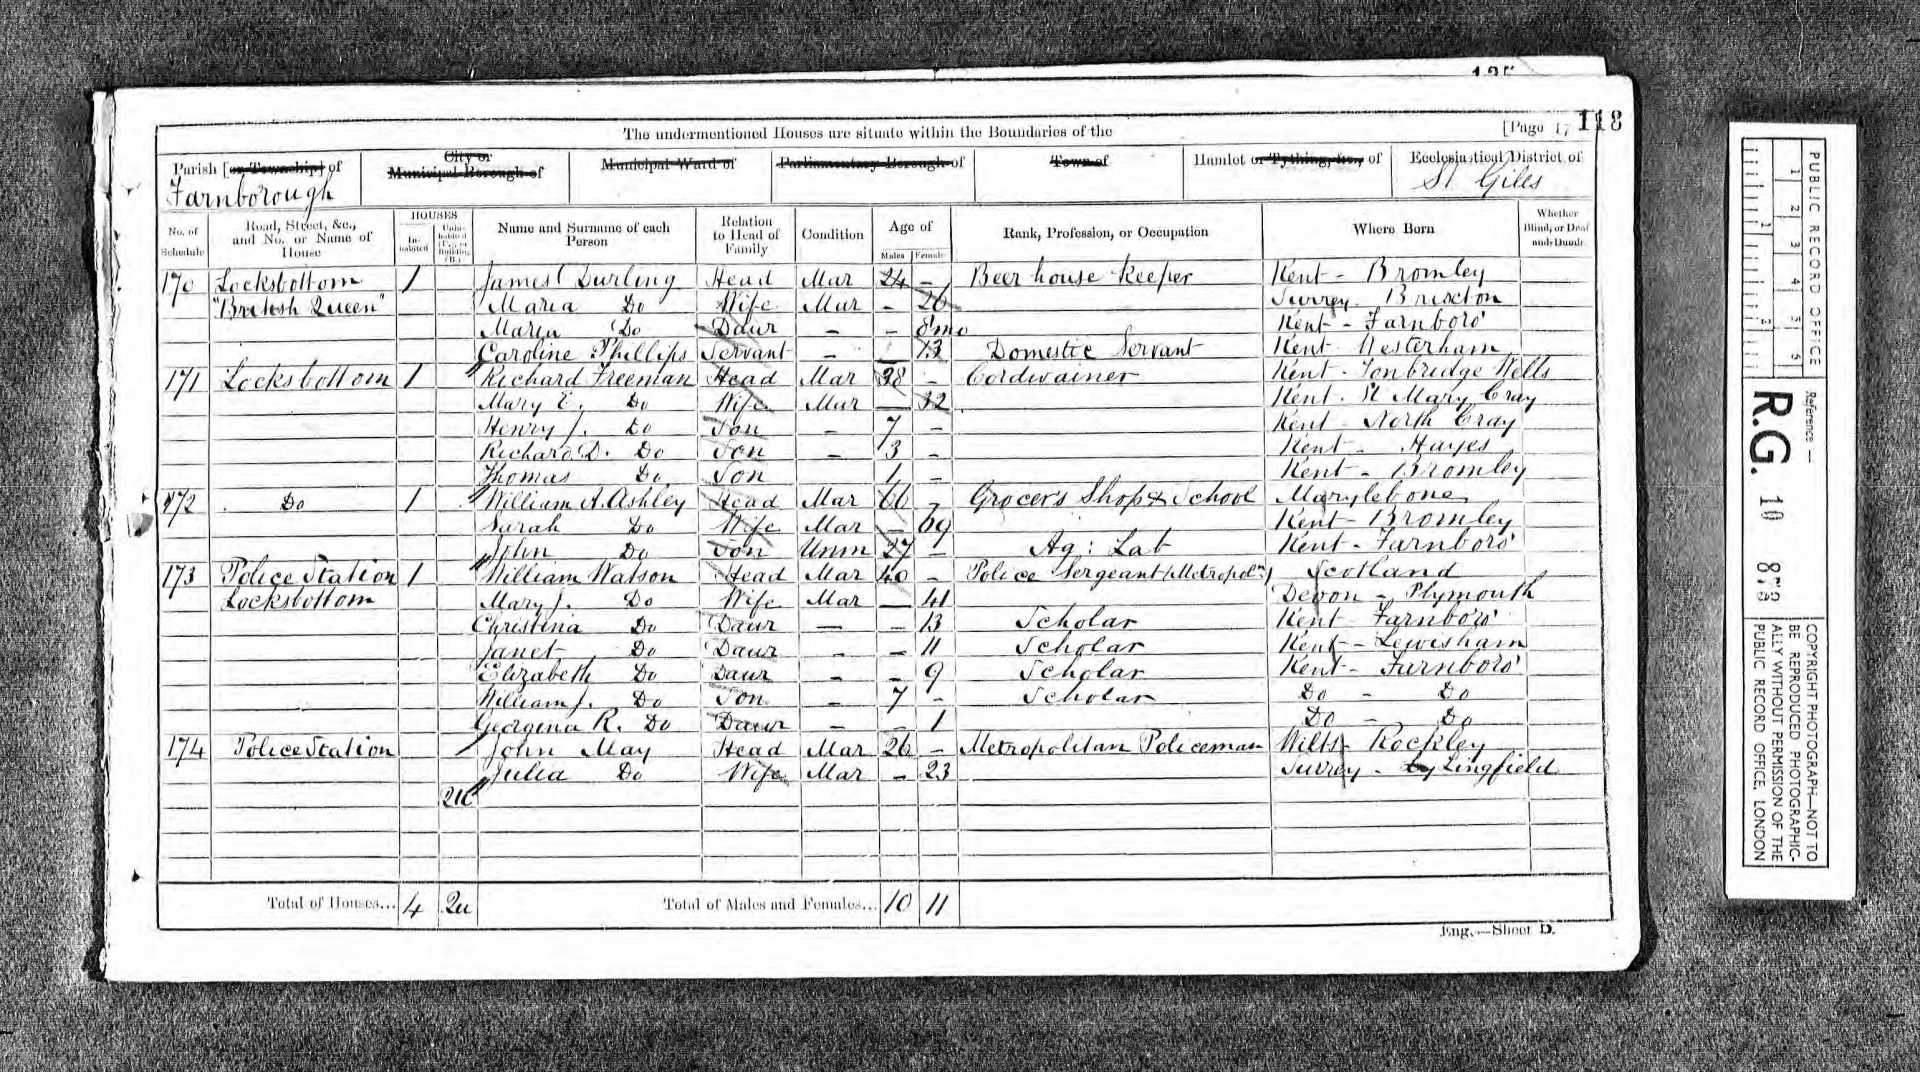 135
118
The undermentioned Houses are situate within the Boundaries of the [Page 17
Parish [or Township] of City or Municipal Borough of Municipal Ward of Parliamentary Borough of Town of Hamlet or Tything, &c., of Ecclesiastical District of
Farnborough St Giles
No. of Schedule Road, Street, &c., and No. or Name of House HOUSES Inhabited Uninhabited (U.), or Building (B.) Name and Surname of each Person Relation to Head of Family Condition Age of Males Females Rank, Profession, or Occupation Where Born Whether Blind, or Deaf-and-Dumb
170 Locksbottom 1 James Durling Head Mar 24 - Beer house Keeper Kent - Bromley
"British Queen" Maria Do Wife Mar - 26 Surrey - Brixton
Maria Do Daur - - 8mo Kent - Farnboro'
Caroline Phillips Servant - 13 Domestic Servant Kent Westerham
171 Locksbottom 1 Richard Freeman Head Mar 38 - Cordwainer Kent - Tonbridge Wells
Mary E. Do Wife Mar - 32 Kent - St Mary Cray
Henry J. Do Son - 7 - Kent - North Cray
Richard D. Do Son - 3 - Kent - Hayes
Thomas Do Son 1 - Kent - Bromley
172 Do 1 William A. Ashley Head Mar 66 - Grocer's Shop & School Marylebone
Sarah Do Wife Mar - 69 Kent - Bromley
John Do Son Unm 27 - Ag: Lab Kent - Farnboro'
173 Police Station 1 William Watson Head Mar 40 - Police Sergeant (Metropoln) Scotland
Locksbottom Mary J. Do Wife Mar - 41 Devon - Plymouth
Christina Do Daur - - 13 Scholar Kent - Farnboro'
Janet Do Daur - - 11 Scholar Kent - Lewisham
Elizabeth Do Daur - - 9 Scholar Kent - Farnboro'
William J. Do Son - 7 - Scholar Do - Do
Georgina R. Do Daur - - 1 Do - Do
174 Police Station John May Head Mar 26 - Metropolitan Policeman Wilts - Rockley
Julia Do Wife Mar - 23 Surrey - Lingfield
2U
Total of Houses... 4 2U Total of Males and Females... 10 11
Eng.—Sheet D.
PUBLIC RECORD OFFICE
1 2 3 4 5 6
1 2
Reference —
R.G. 10 873
COPYRIGHT PHOTOGRAPH—NOT TO
BE REPRODUCED PHOTOGRAPHIC-
ALLY WITHOUT PERMISSION OF THE
PUBLIC RECORD OFFICE, LONDON